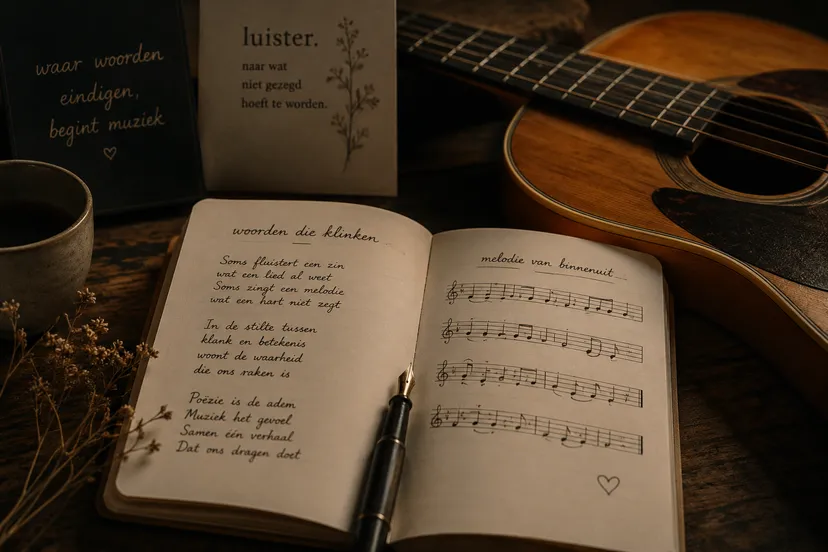 waar woorden
eindigen,
begint muziek
luister.
naar wat
niet gezegd
hoeft te worden.
woorden die klinken
Soms fluistert een zin
wat een lied al weet
Soms zingt een melodie
wat een hart niet zegt
In de stilte tussen
klank en betekenis
woont de waarheid
die ons raken is
Poëzie is de adem
Muziek het gevoel
Samen één verhaal
Dat ons dragen doet
melodie van binnenuit